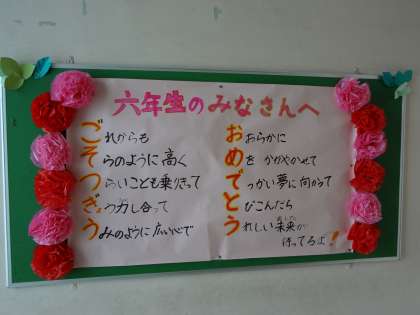 六年生のみなさんへ
ごれからも
そらのように高く
つらいことも乗りきって
ぎょう力し合って
うみのように広い心で
おおらかに
めを かがやかせて
でっかい夢に向かって
とびこんだら
うれしい未来が
待ってるよ!